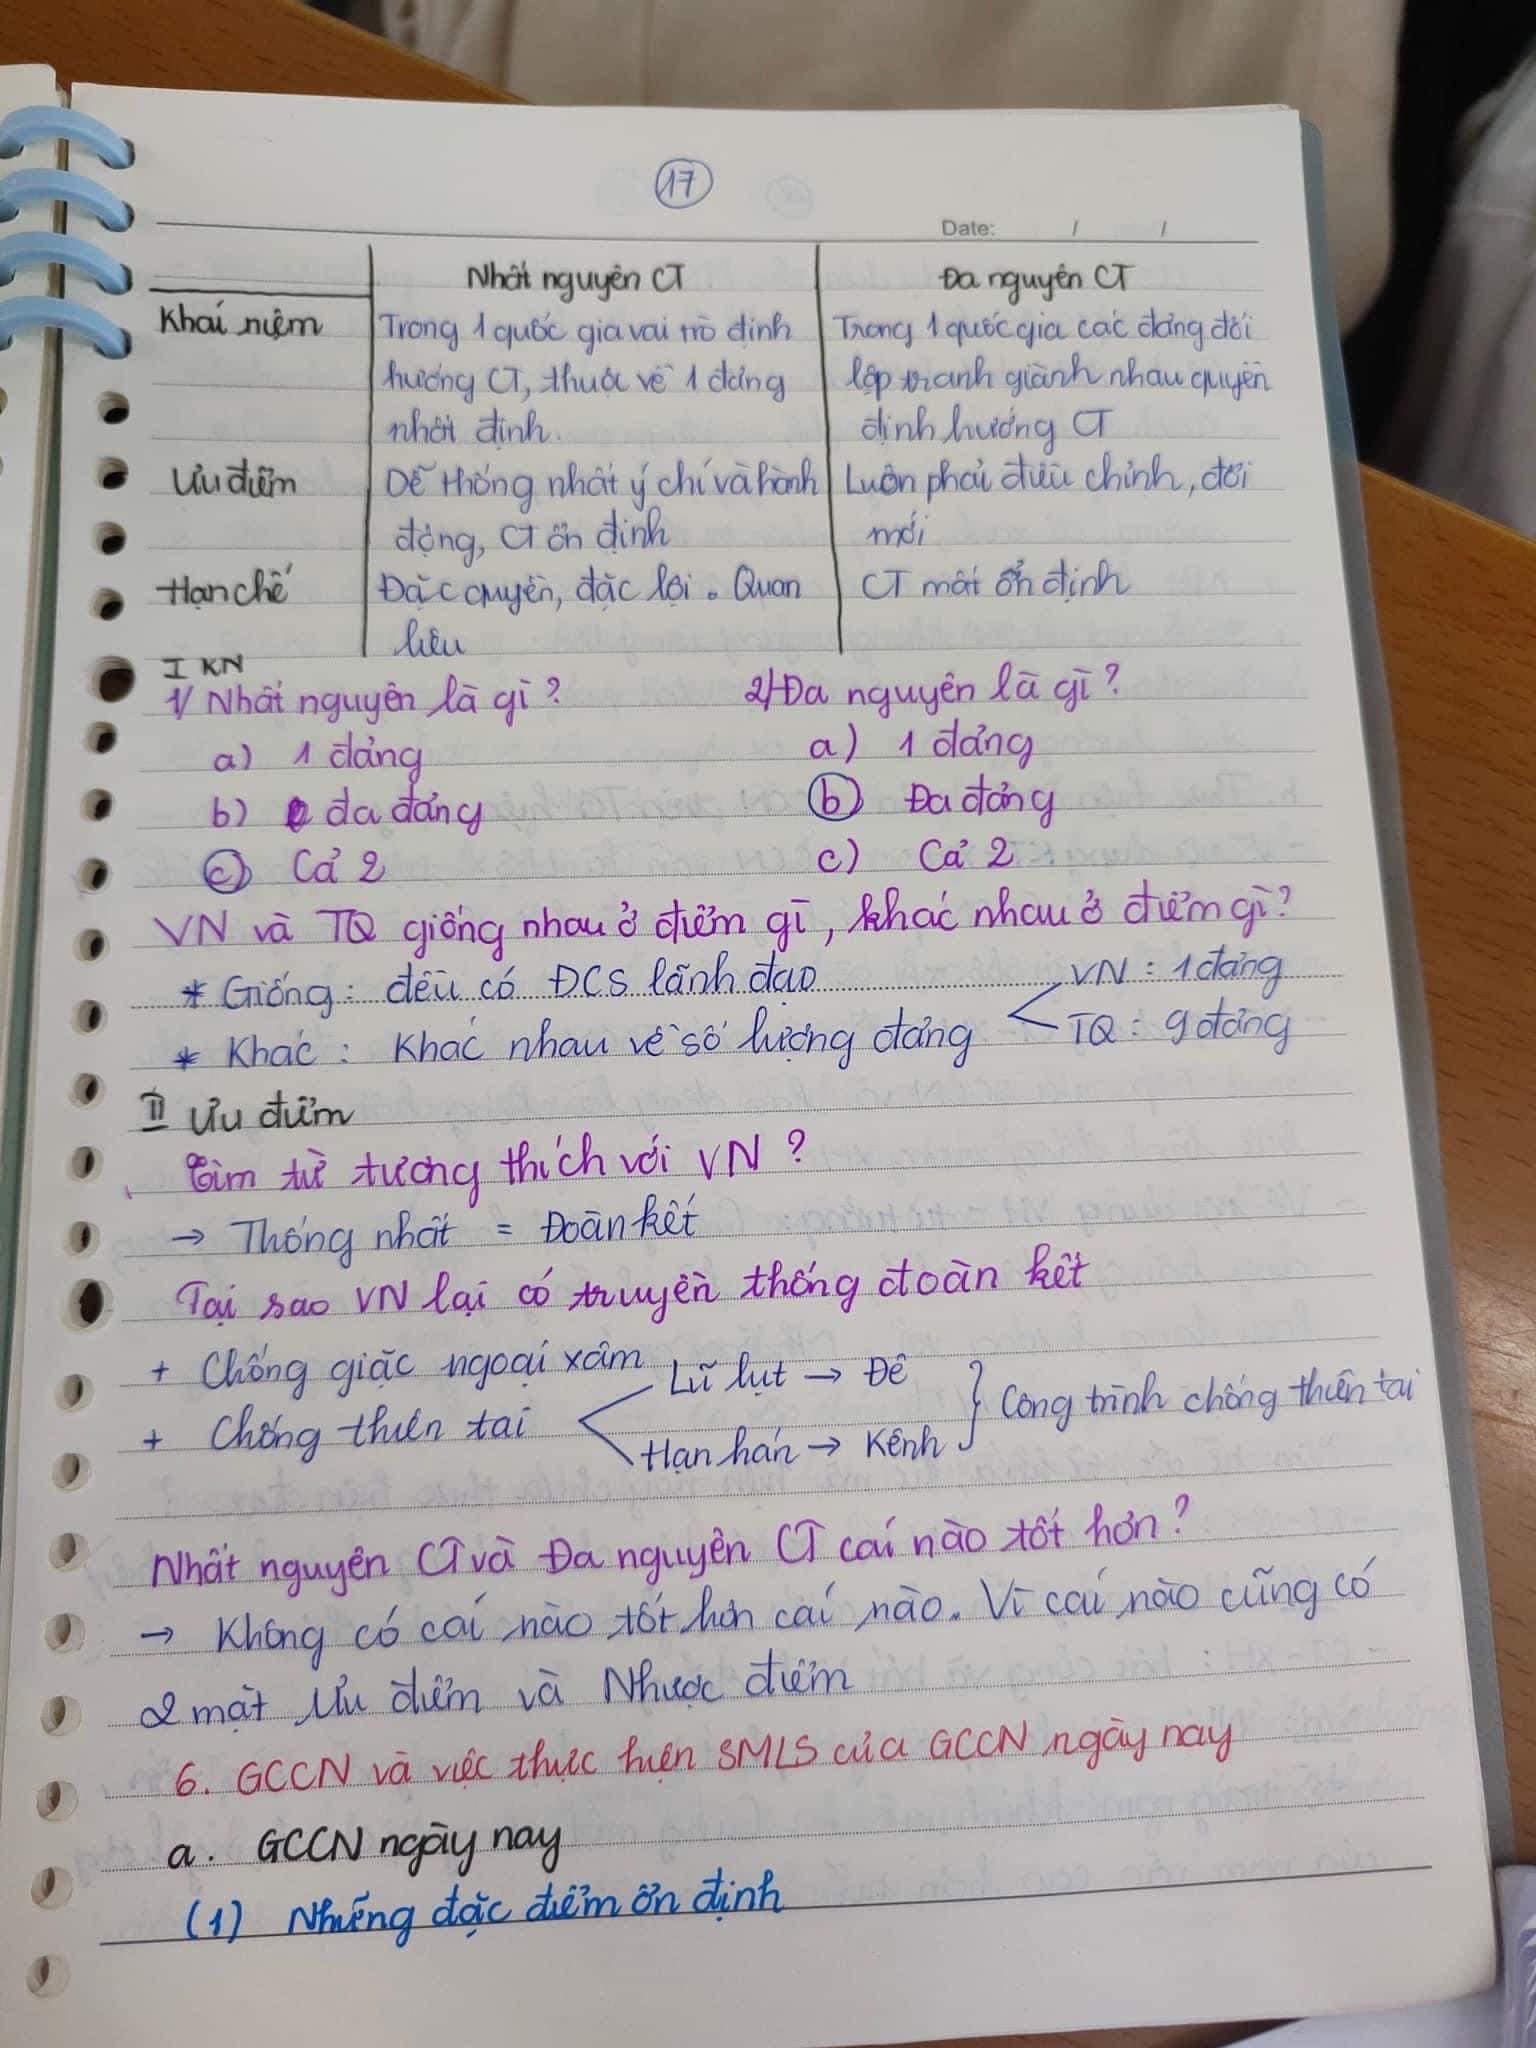 17
Date: / /
Nhất nguyên CT Đa nguyên CT
Khái niệm Trong 1 quốc gia vai trò định Trong 1 quốc gia các đảng đối
hướng CT, thuộc về 1 đảng lập tranh giành nhau quyền
nhất định. định hướng CT
Ưu điểm Dễ thống nhất ý chí và hành Luôn phải điều chỉnh, đổi
động, CT ổn định mới
Hạn chế Đặc quyền, đặc lợi. Quan CT mất ổn định
liêu
I KN
1/ Nhất nguyên là gì? 2/ Đa nguyên là gì?
a) 1 đảng a) 1 đảng
b) đa đảng b) Đa đảng
c) Cả 2 c) Cả 2
VN và TQ giống nhau ở điểm gì, khác nhau ở điểm gì?
* Giống: đều có ĐCS lãnh đạo VN: 1 đảng
* Khác: Khác nhau về số lượng đảng TQ: 9 đảng
II Ưu điểm
Tìm từ tương thích với VN?
→ Thống nhất = Đoàn kết
Tại sao VN lại có truyền thống đoàn kết
+ Chống giặc ngoại xâm Lũ lụt → Đê
+ Chống thiên tai Hạn hán → Kênh } Công trình chống thiên tai
Nhất nguyên CT và Đa nguyên CT cái nào tốt hơn?
→ Không có cái nào tốt hơn cái nào. Vì cái nào cũng có
2 mặt Ưu điểm và Nhược điểm
6. GCCN và việc thực hiện SMLS của GCCN ngày nay
a. GCCN ngày nay
(1) Những đặc điểm ổn định